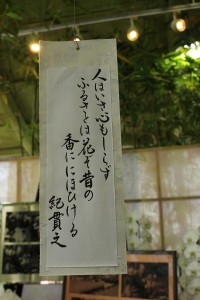 人はいさ心もしらず
ふるさとは花ぞ昔の
香ににほひける
紀貫之